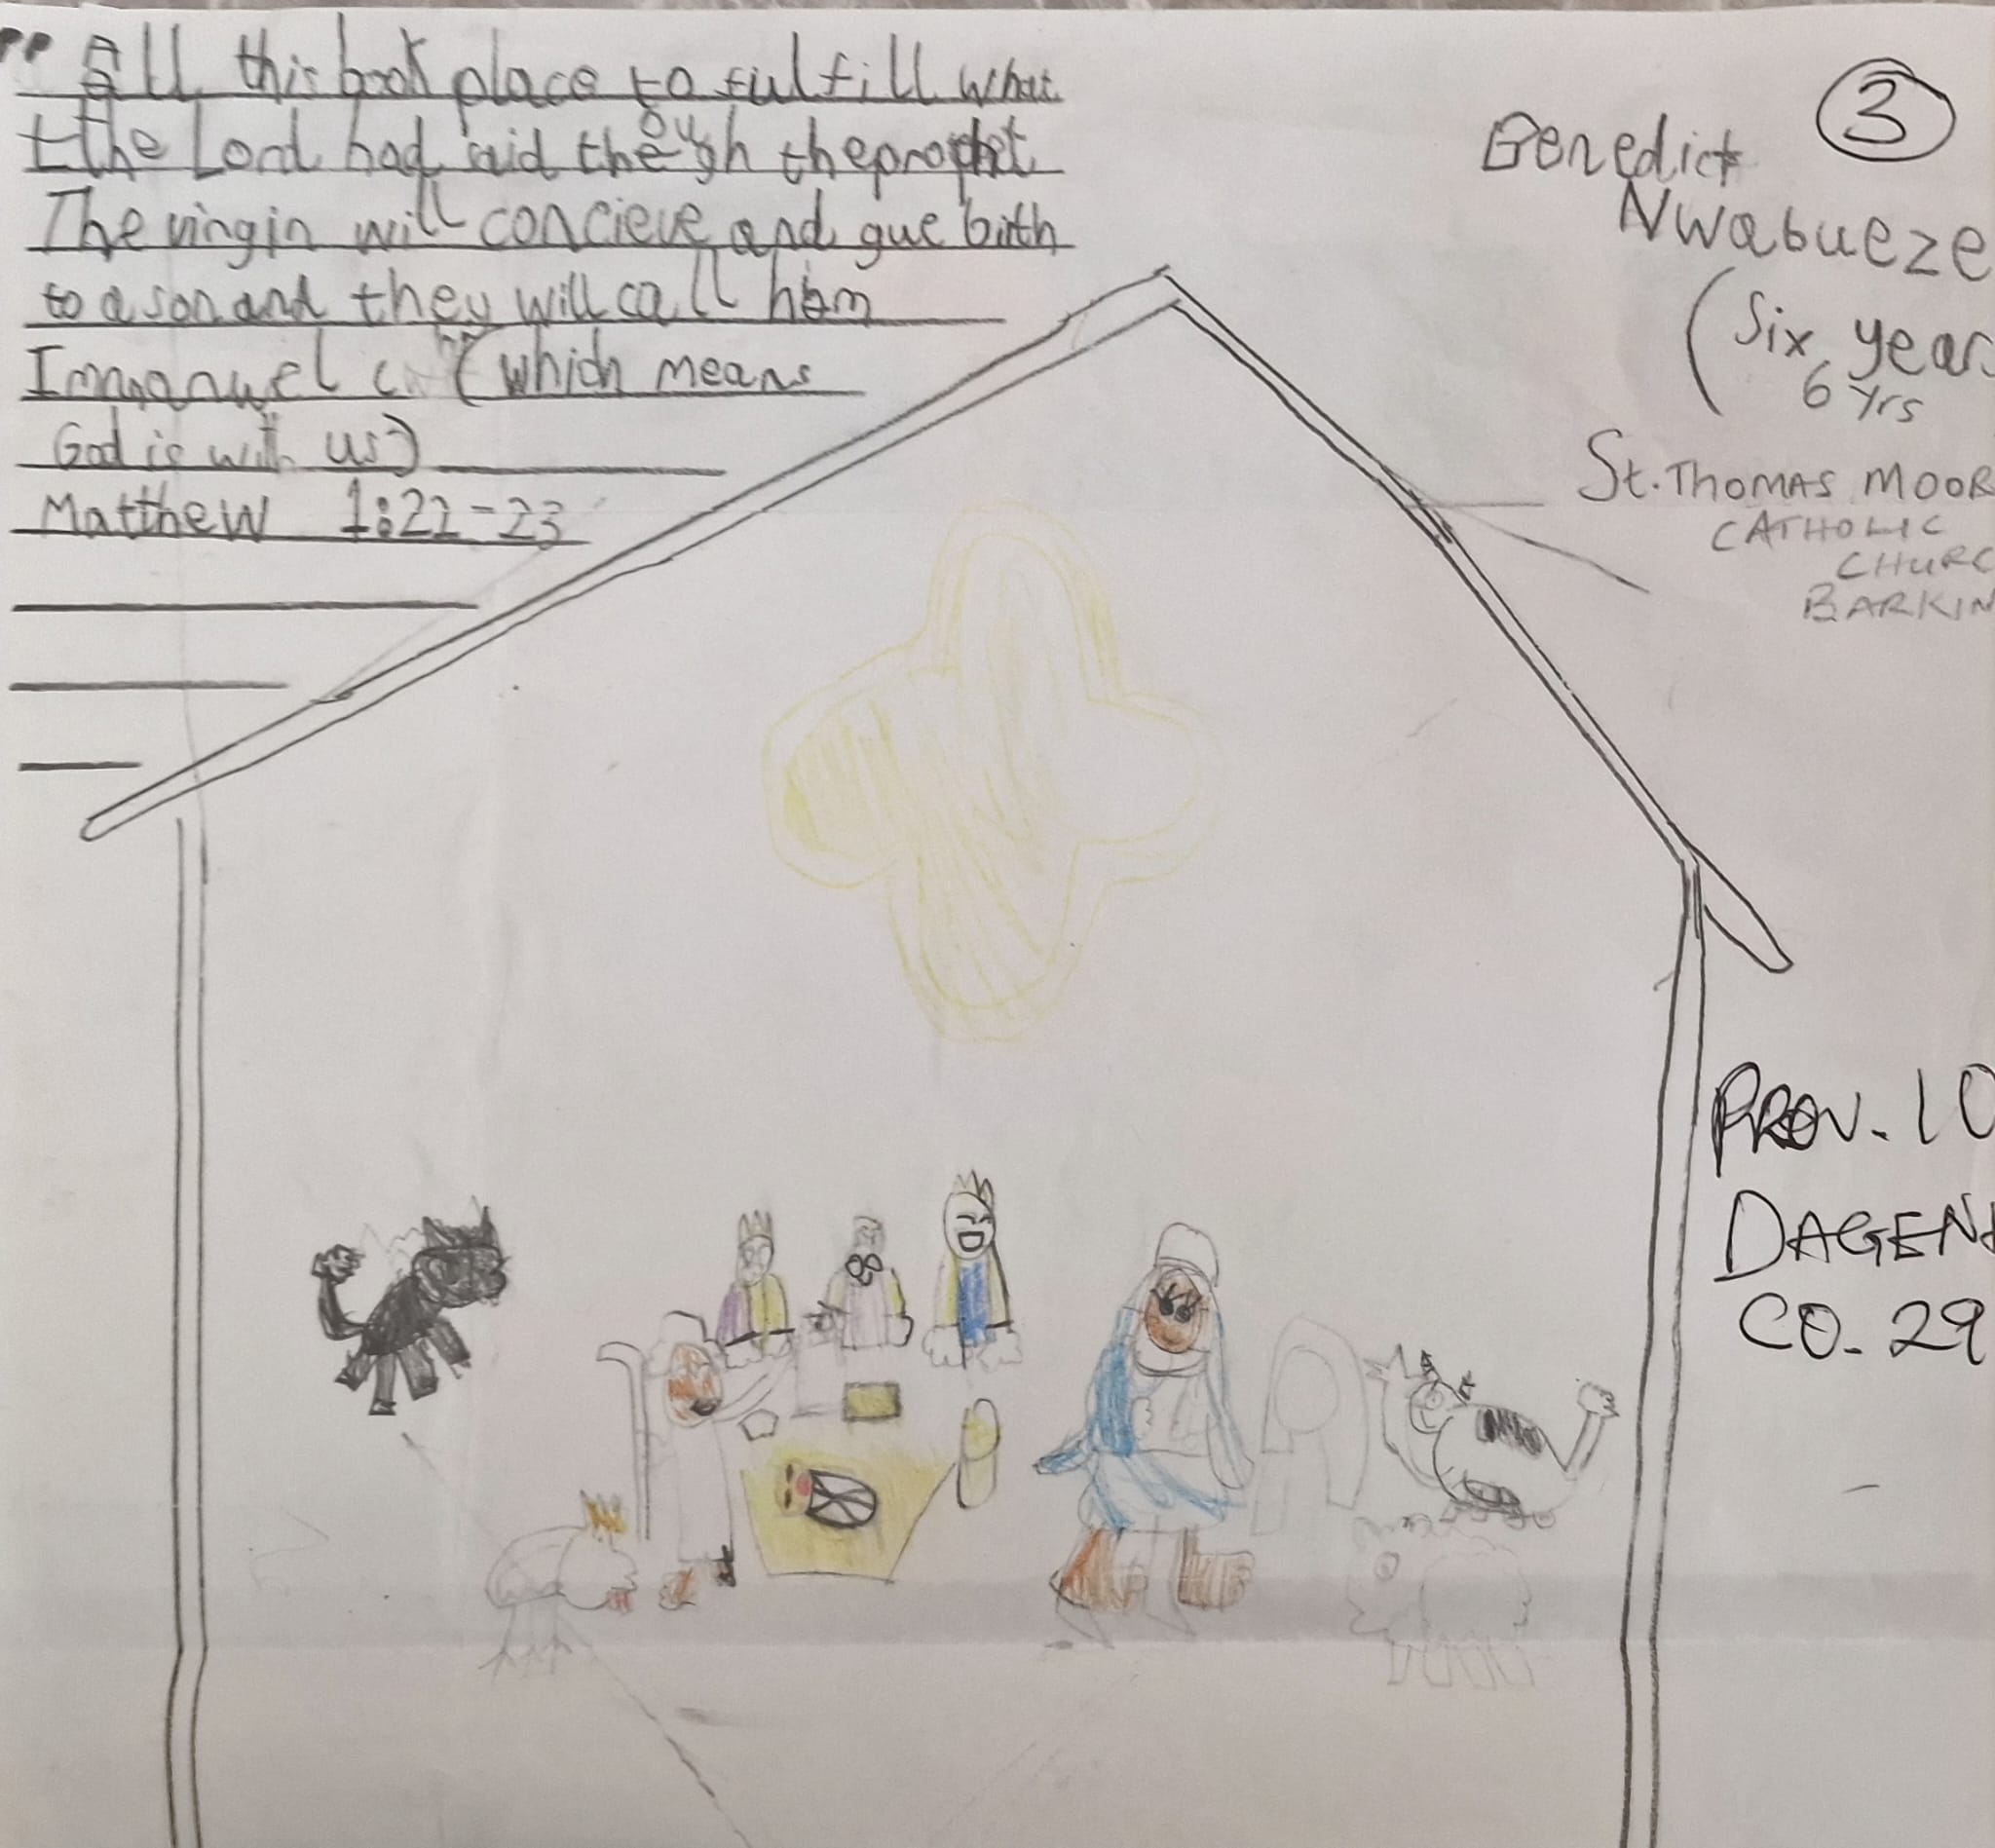 " All this book place to fulfill what
tthe Lord had said through theprophet
The virgin will concieve and gue birth
to a son and they will call him
Immanuel (which means
God is with us)
Matthew 1:22-23
3
Benedict
Nwabueze
(Six years
6 Yrs
St. THOMAS MOOR
CATHOLIC
CHURC
BARKIN
PROV. 10
DAGENH
CO. 29